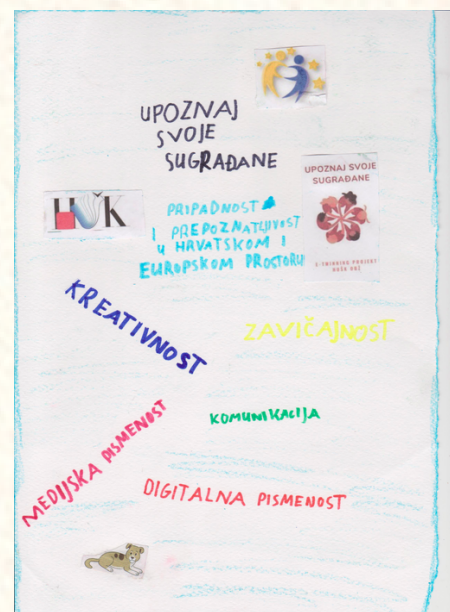 UPOZNAJ
SVOJE
SUGRAĐANE
HČK
UPOZNAJ SVOJE
SUGRAĐANE
E-TWINNING PROJEKT
PRIPADNOST
I PREPOZNATLJIVOST
U HRVATSKOM I
EUROPSKOM PROSTORU
KREATIVNOST
ZAVIČAJNOST
KOMUNIKACIJA
MEDIJSKA PISMENOST
DIGITALNA PISMENOST